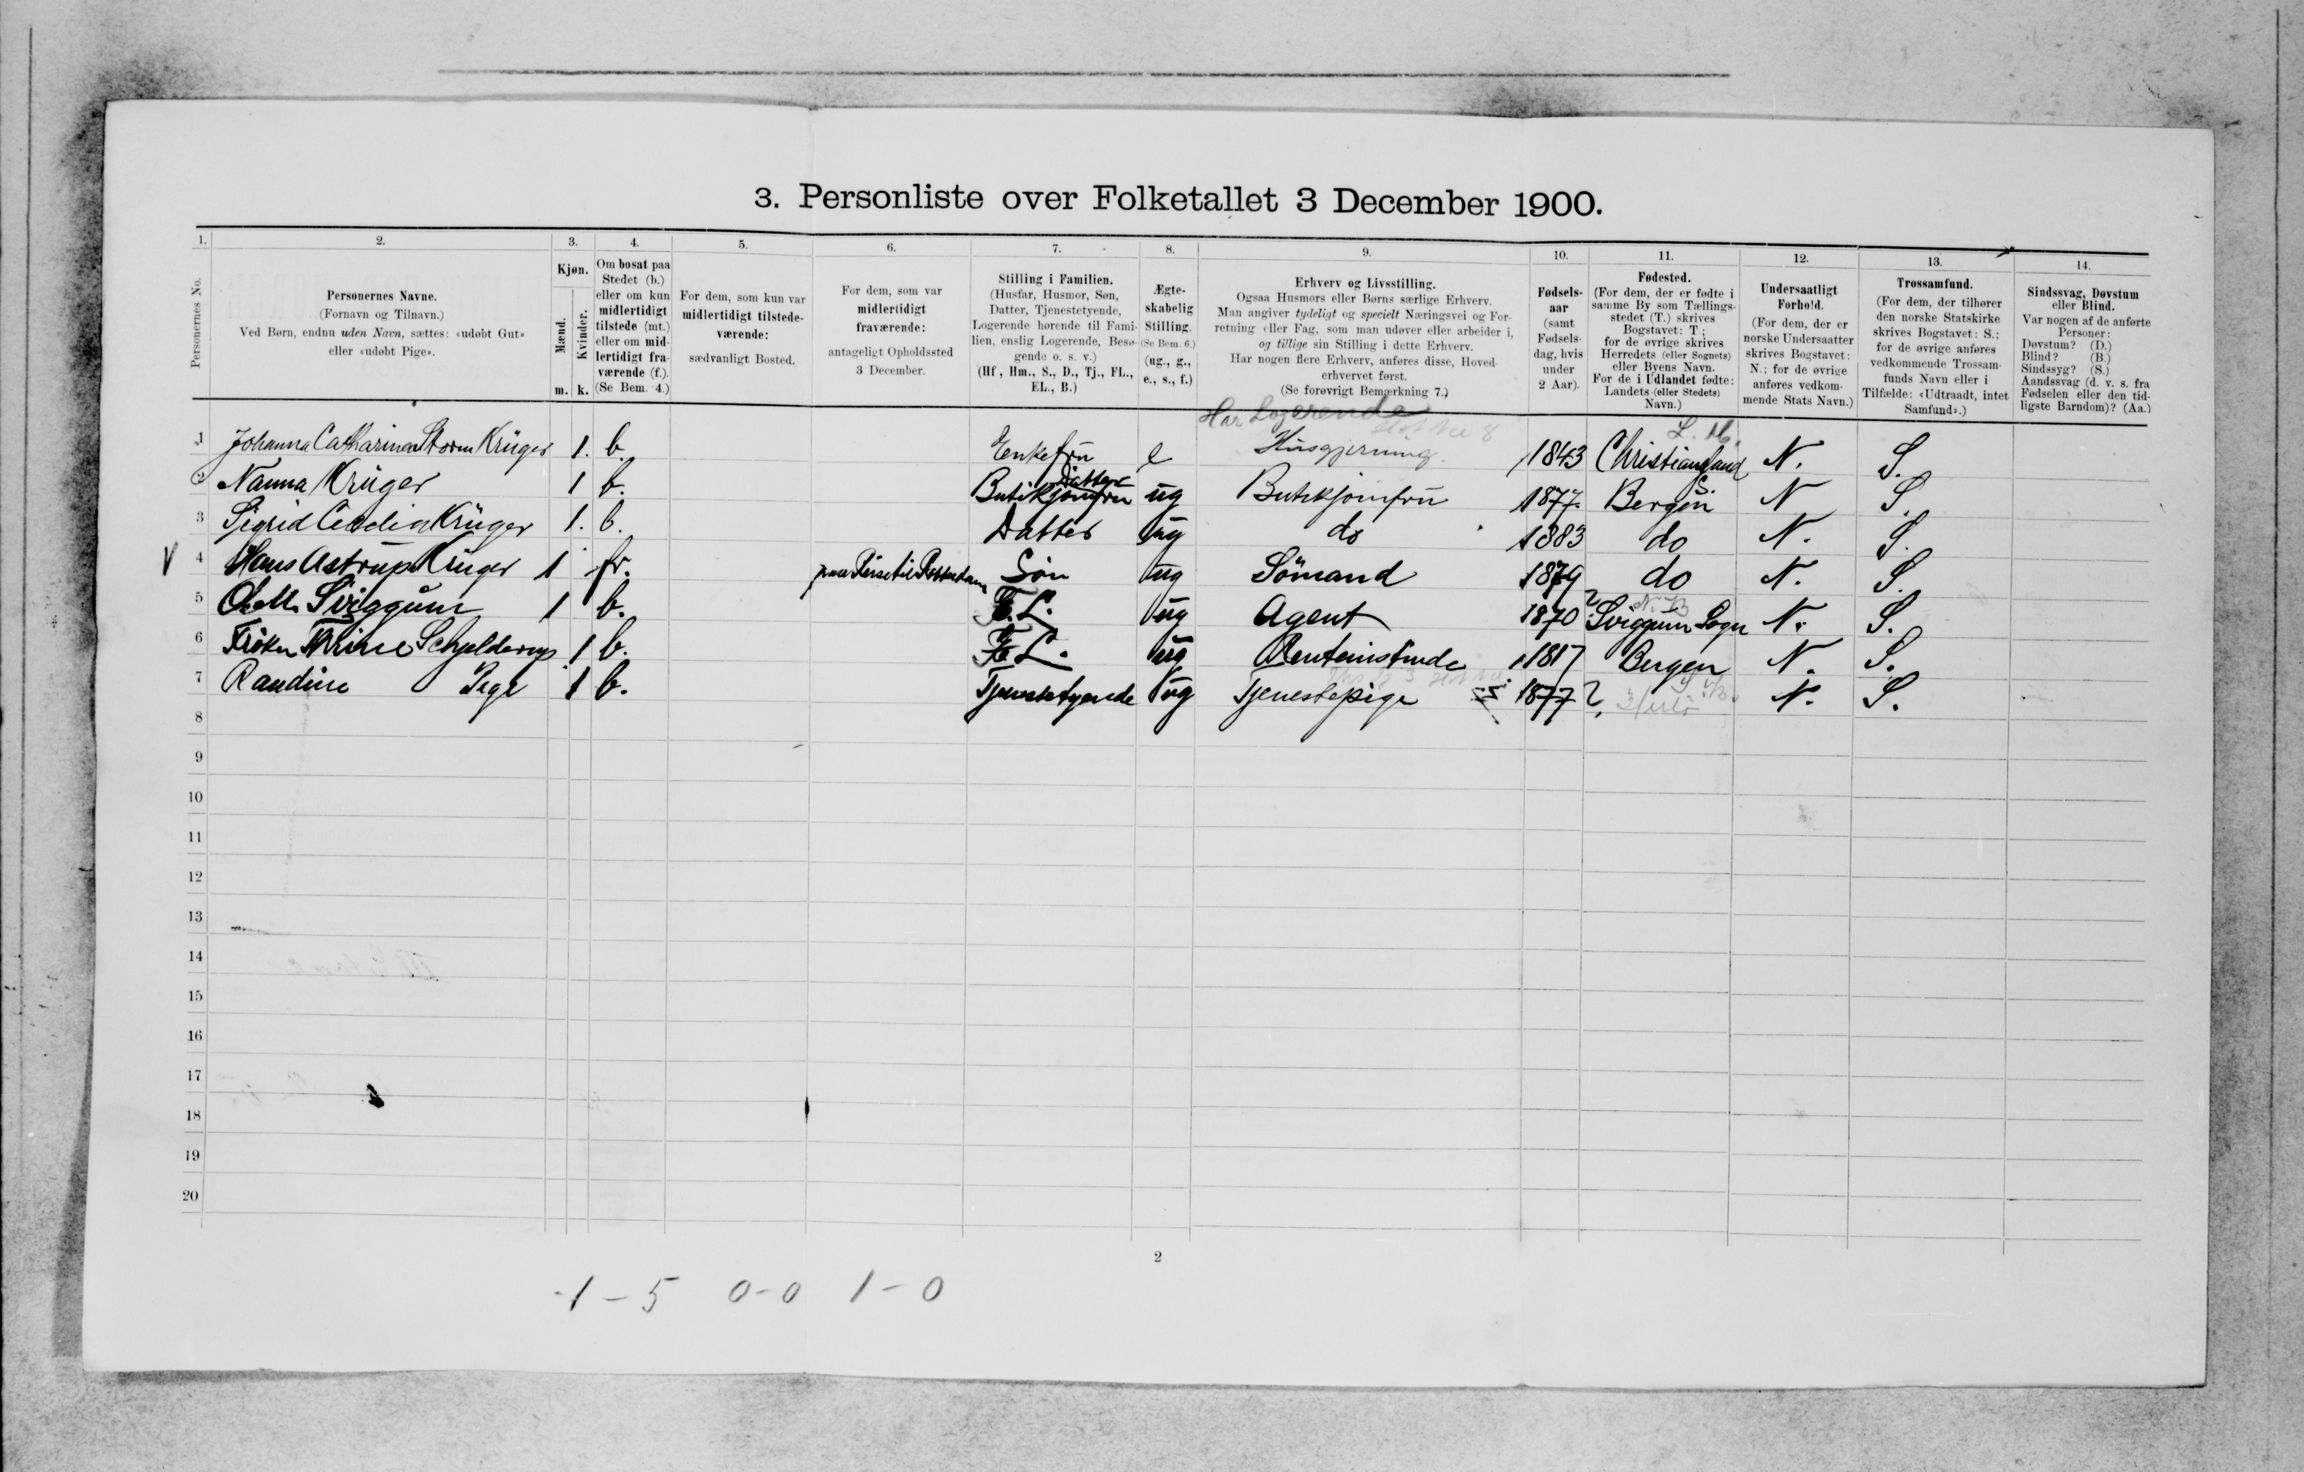 3. Personliste over Folketallet 3 December 1900.
1. 2. 3. 4. 5. 6. 7. 8. 9. 10. 11. 12. 13. 14.
Personernes No.
Personernes Navne.
(Fornavn og Tilnavn.)
Ved Børn, endnu uden Navn, sættes: «udøbt Gut»
eller «udøbt Pige».
Kjøn.
Mænd.
Kvinder.
m. k.
Om bosat paa
Stedet (b.)
eller om kun
midlertidigt
tilstede (mt.)
eller om mid-
lertidigt fra-
værende (f.).
(Se Bem. 4.)
For dem, som kun var
midlertidigt tilstede-
værende:
sædvanligt Bosted.
For dem, som var
midlertidigt
fraværende:
antageligt Opholdssted
3 December.
Stilling i Familien.
(Husfar, Husmor, Søn,
Datter, Tjenestetyende,
Logerende hørende til Fami-
lien, enslig Logerende, Besø-
gende o. s. v.)
(Hf, Hm., S., D., Tj., FL.,
EL., B.)
Ægte-
skabelig
Stilling.
(Se Bem. 6.)
(ug., g.,
e., s., f.)
Erhverv og Livsstilling.
Ogsaa Husmors eller Børns særlige Erhverv.
Man angiver tydeligt og specielt Næringsvei og For-
retning eller Fag, som man udøver eller arbeider i,
og tillige sin Stilling i dette Erhverv.
Har nogen flere Erhverv, anføres disse, Hoved-
erhvervet først.
(Se forøvrigt Bemærkning 7.)
Fødsels-
aar
(samt
Fødsels-
dag, hvis
under
2 Aar).
Fødested.
(For dem, der er fødte i
samme By som Tællings-
stedet (T.) skrives
Bogstavet: T;
for de øvrige skrives
Herredets (eller Sognets)
eller Byens Navn.
For de i Udlandet fødte:
Landets (eller Stedets)
Navn.)
Undersaatligt
Forhold.
(For dem, der er
norske Undersaatter
skrives Bogstavet:
N.; for de øvrige
anføres vedkom-
mende Stats Navn.)
Trossamfund.
(For dem, der tilhører
den norske Statskirke
skrives Bogstavet: S.;
for de øvrige anføres
vedkommende Trossam-
funds Navn eller i
Tilfælde: «Udtraadt, intet
Samfund».)
Sindssvag, Døvstum
eller Blind.
Var nogen af de anførte
Personer:
Døvstum? (D.)
Blind? (B.)
Sindssyg? (S.)
Aandssvag (d. v. s. fra
Fødselen eller den tid-
ligste Barndom)? (Aa.)
Har Logerende
1 Johanna Catharina Storm Krüger 1. b. Enkefru e Husgjerning. 1843 Christiansand N. S.
Datter
2 Nanna Krüger 1 b. Butikjomfru ug Butikjomfru 1877. Bergen N S.
3 Sigrid Cecelia Krüger 1. b. Datter ug do 1883 do N. S.
V 4 Hans Astrup Krüger 1 fr. paa Reise til Rotterdam Søn ug Sömand 1879 do N. S.
5 Sviggum 1 b. F. L. ug Agent 1870 Sviggum Sogn N. S.
6 Fröken Schjelderup 1 b. F. L. ug 1817 Bergen N. S.
7 Randine Pige 1 b. Tjenestetyende ug Tjenestepige 1877 ? N. S.
8
9
10
11
12
13
14
15
16
17
18
19
20
2
1-5 0-0 1-0